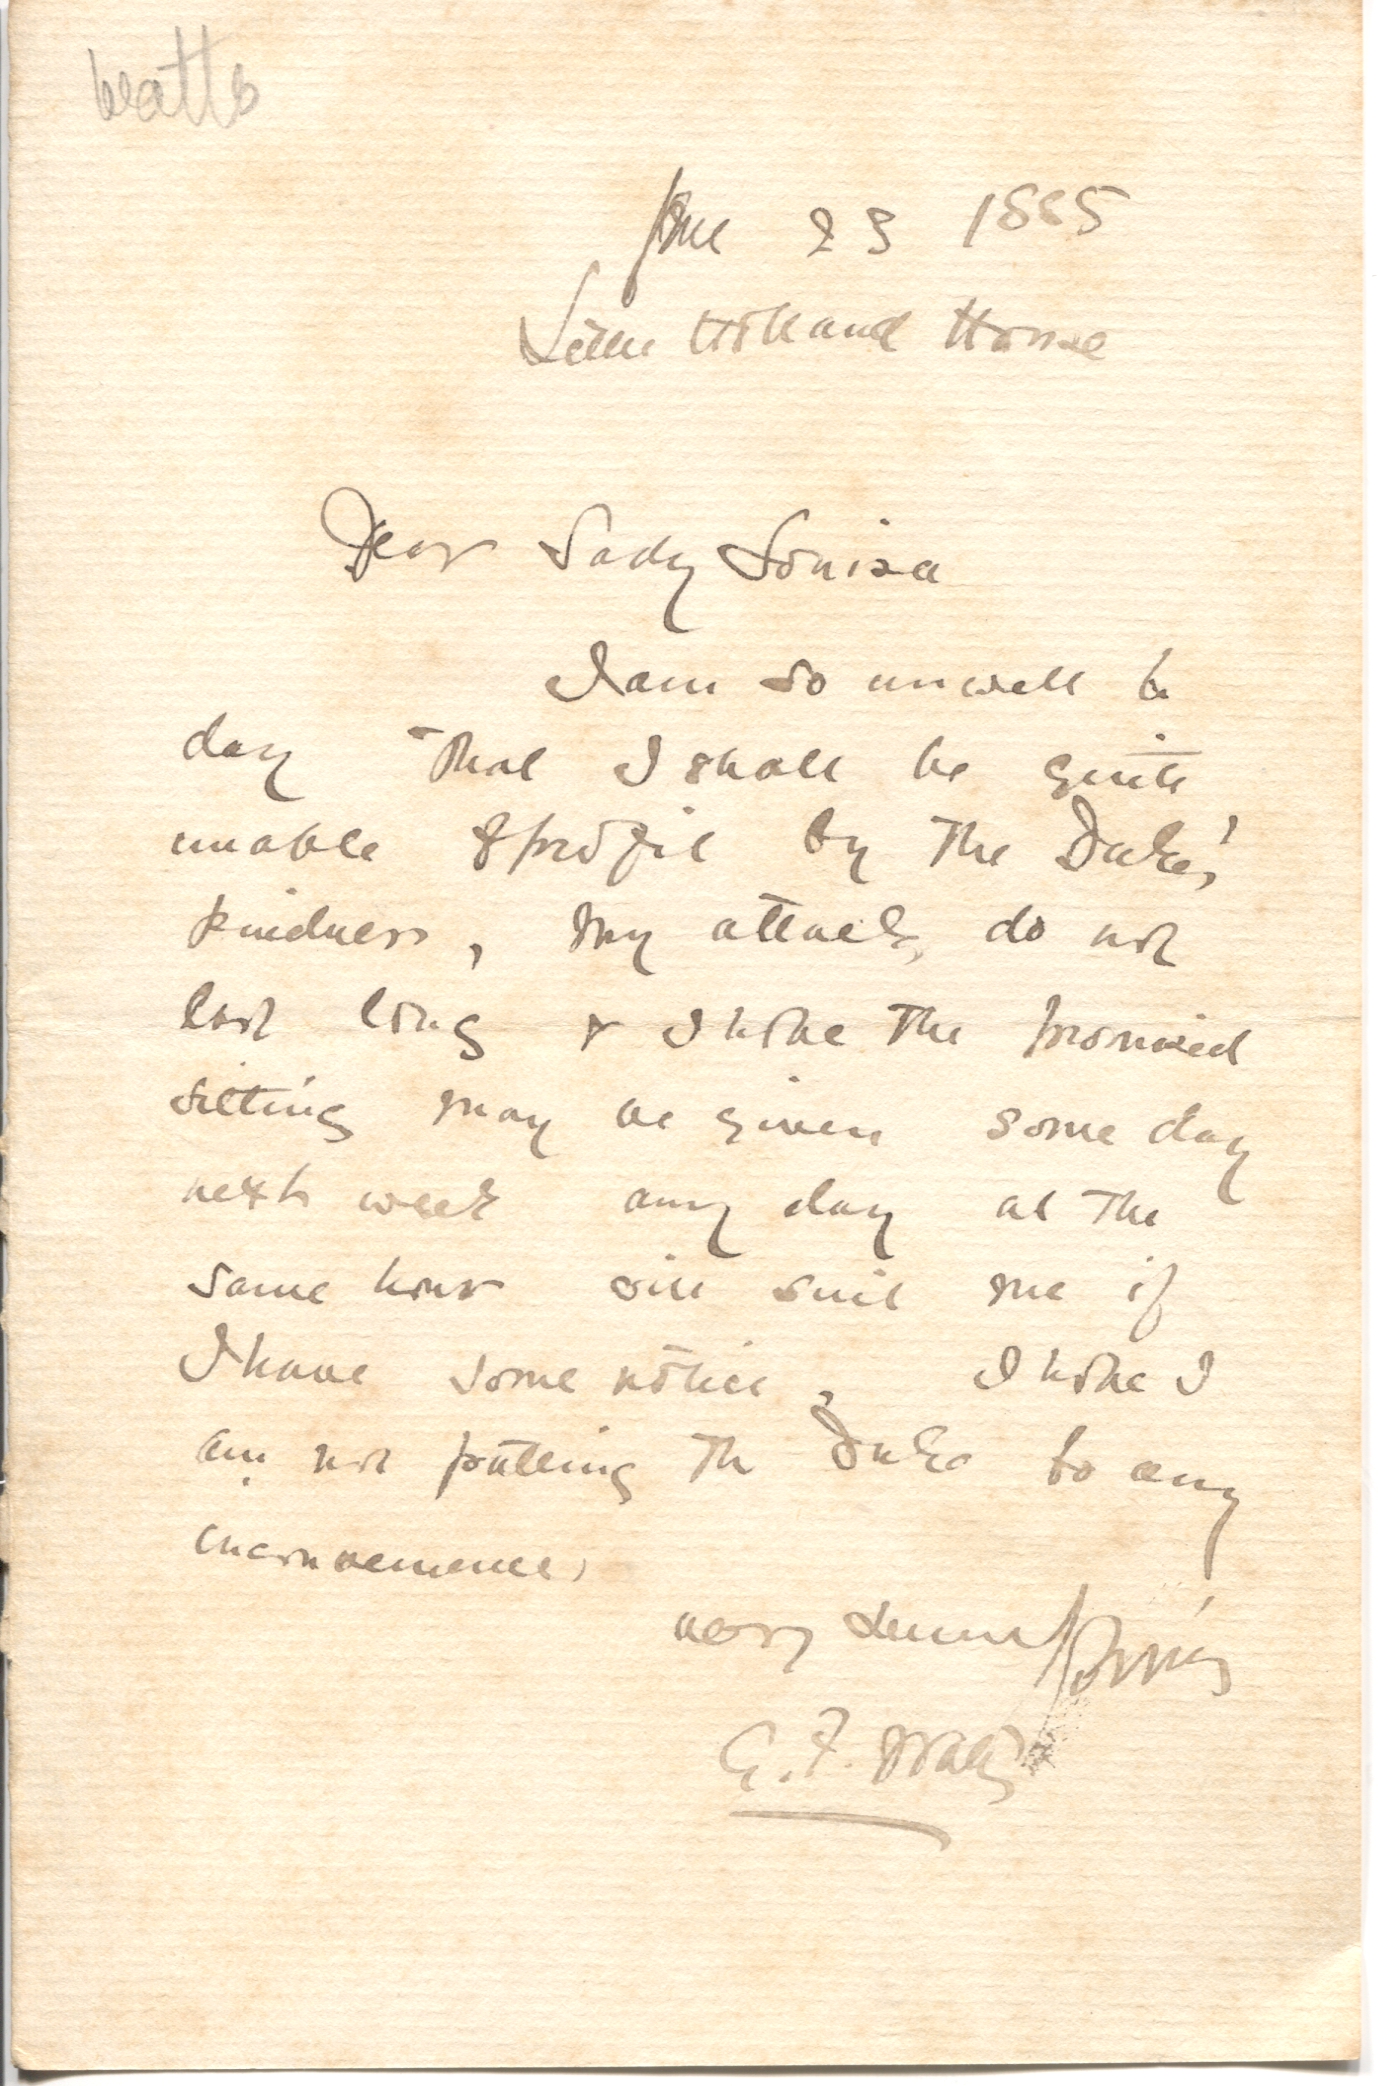 Watts
June 23 1885
Little Holland House
Dear Lady Louisa
I am so unwell to
day that I shall be quite
unable to profit by the Duke's
kindness, my attacks do not
last long & I hope the promised
sitting may be given some day
next week any day at the
same hour will suit me if
I have some notice, I hope I
am not putting the Duke to any
inconvenience,
very sincerely yours
G. F. Watts